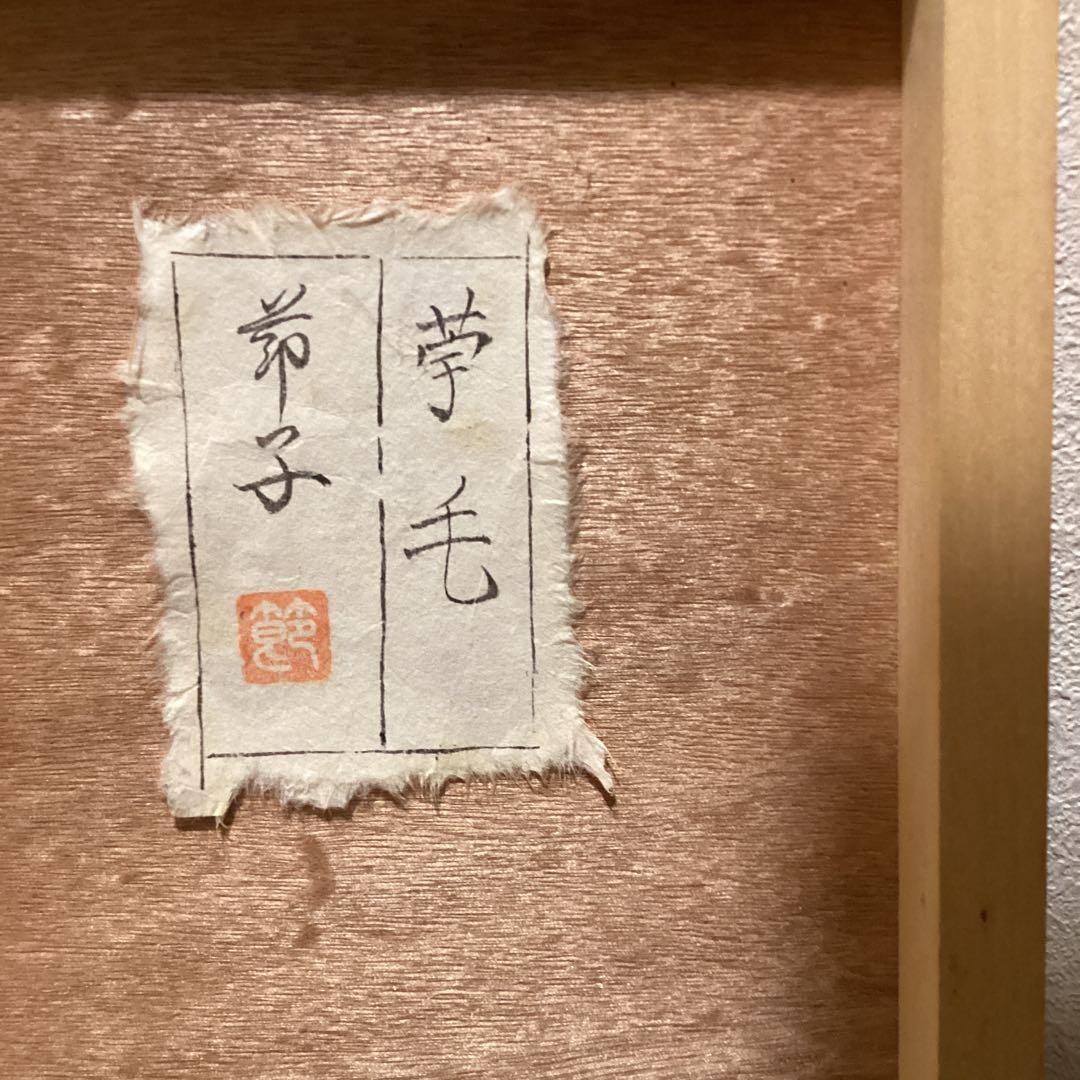 苧毛
節子
節